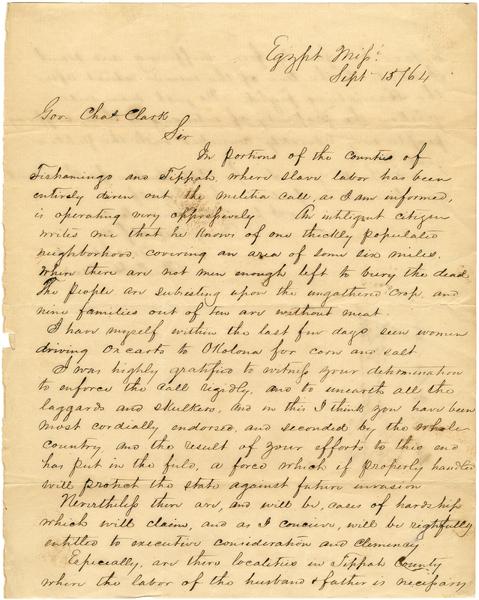 Egypt Missi
Sept 15/64
Gov. Chas Clark
Sir
In portions of the counties of
Tishamingo and Tippah, where slave labor has been
entirely driven out the militia call, as I am informed,
is operating very oppressively An intiligent citizen
writes me that he knows of one thickly populated
neighborhood, covering an area of some six miles.
When there are not men enough left to bury the dead
The people are subsisting upon the ungathered crop, and
nine families out of ten are without meat.
I have myself within the last few days seen women
driving Ox carts to Okolona for corn and salt
I was highly gratified to witness your determination
to enforce the call rigidly, and to unearth all the
laggards and skulkers, and in this I think you have been
most cordially endorsed, and seconded by the whole
country and the result of your efforts to this end
has put in the field, a force which if properly handled
will protect the state against future invasion
Nevertheless there are, and will be, cases of hardship
which will claim, and as I concieve, will be rightfully
entitled to executive consideration and clemency
Especially, are there localities in Tippah County
where the labor of the husband & father is necessary